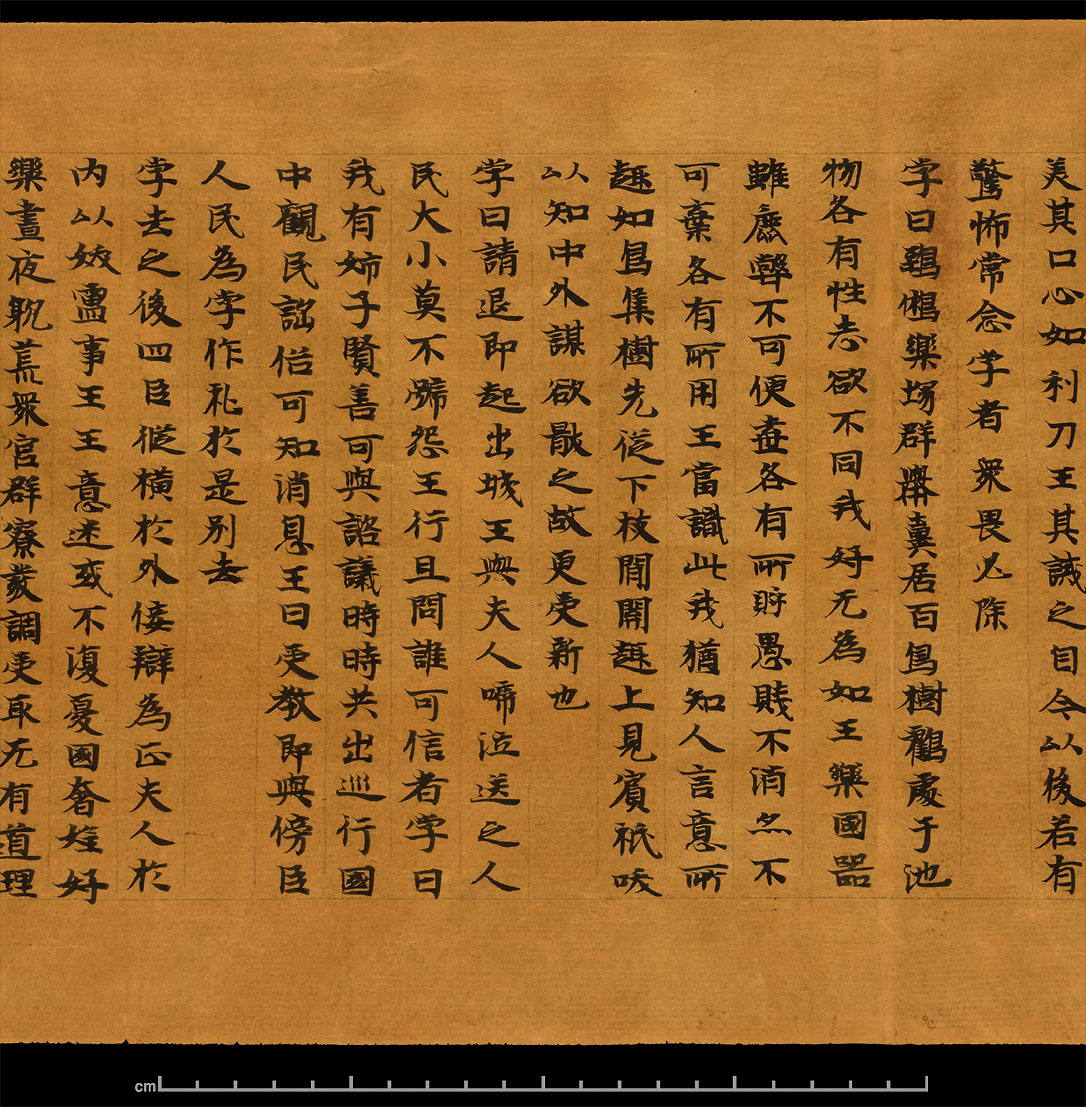 美其口心如利刀王其誡之自今以後若有
驚怖常念孛者衆畏必除
孛曰鵂樂塚群糞居百鳥樹鸛處于池
物各有性志欲不同我好无為如王樂國器
雖麁弊不可便盡各有所貯愚賤不消亦不
可棄各有所用王當識此我猶知人言意所
趣如鳥集樹先從下枝間關趣上見賓祇吠
以知中外謀欲散之故更受新也
孛曰請退即起出城王與夫人啼泣送之人
民大小莫不啼怨王行且問誰可信者孛曰
我有姊子賢善可與諮議時時共出巡行國
中觀民謡俗可知消息王曰受教即與傍臣
人民為孛作礼於是別去
孛去之後四臣從橫於外佞辯為正夫人於
内以妖蠱事王王意迷或不復憂國奢婬好
樂晝夜躭荒衆官群寮發調受取无有道理